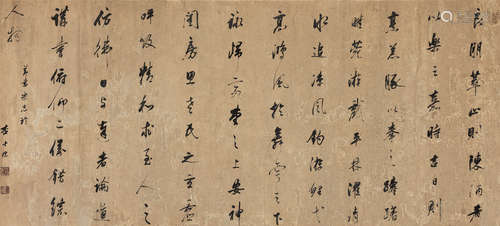 良朋萃止則陳酒肴
以樂之嘉時吉日則
烹羔豚以奉之躊躇
畦苑游戲平林濯清
水追涼風釣游鯉弋
高鴻風於舞雩之下
詠歸高堂之上安神
閨房思老氏之玄虛
呼吸精和求至人之
仿彿日與達者論道
講書俯仰二儀錯綜
人物